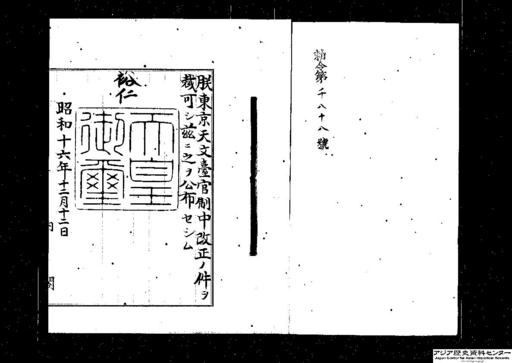 勅令第千八十八號
朕東京天文臺官制中改正ノ件ヲ
裁可シ茲ニ之ヲ公布セシム
裕仁
天皇
御璽
昭和十六年十二月十二日
内閣
アジア歴史資料センター
Japan Center for Asian Historical Records